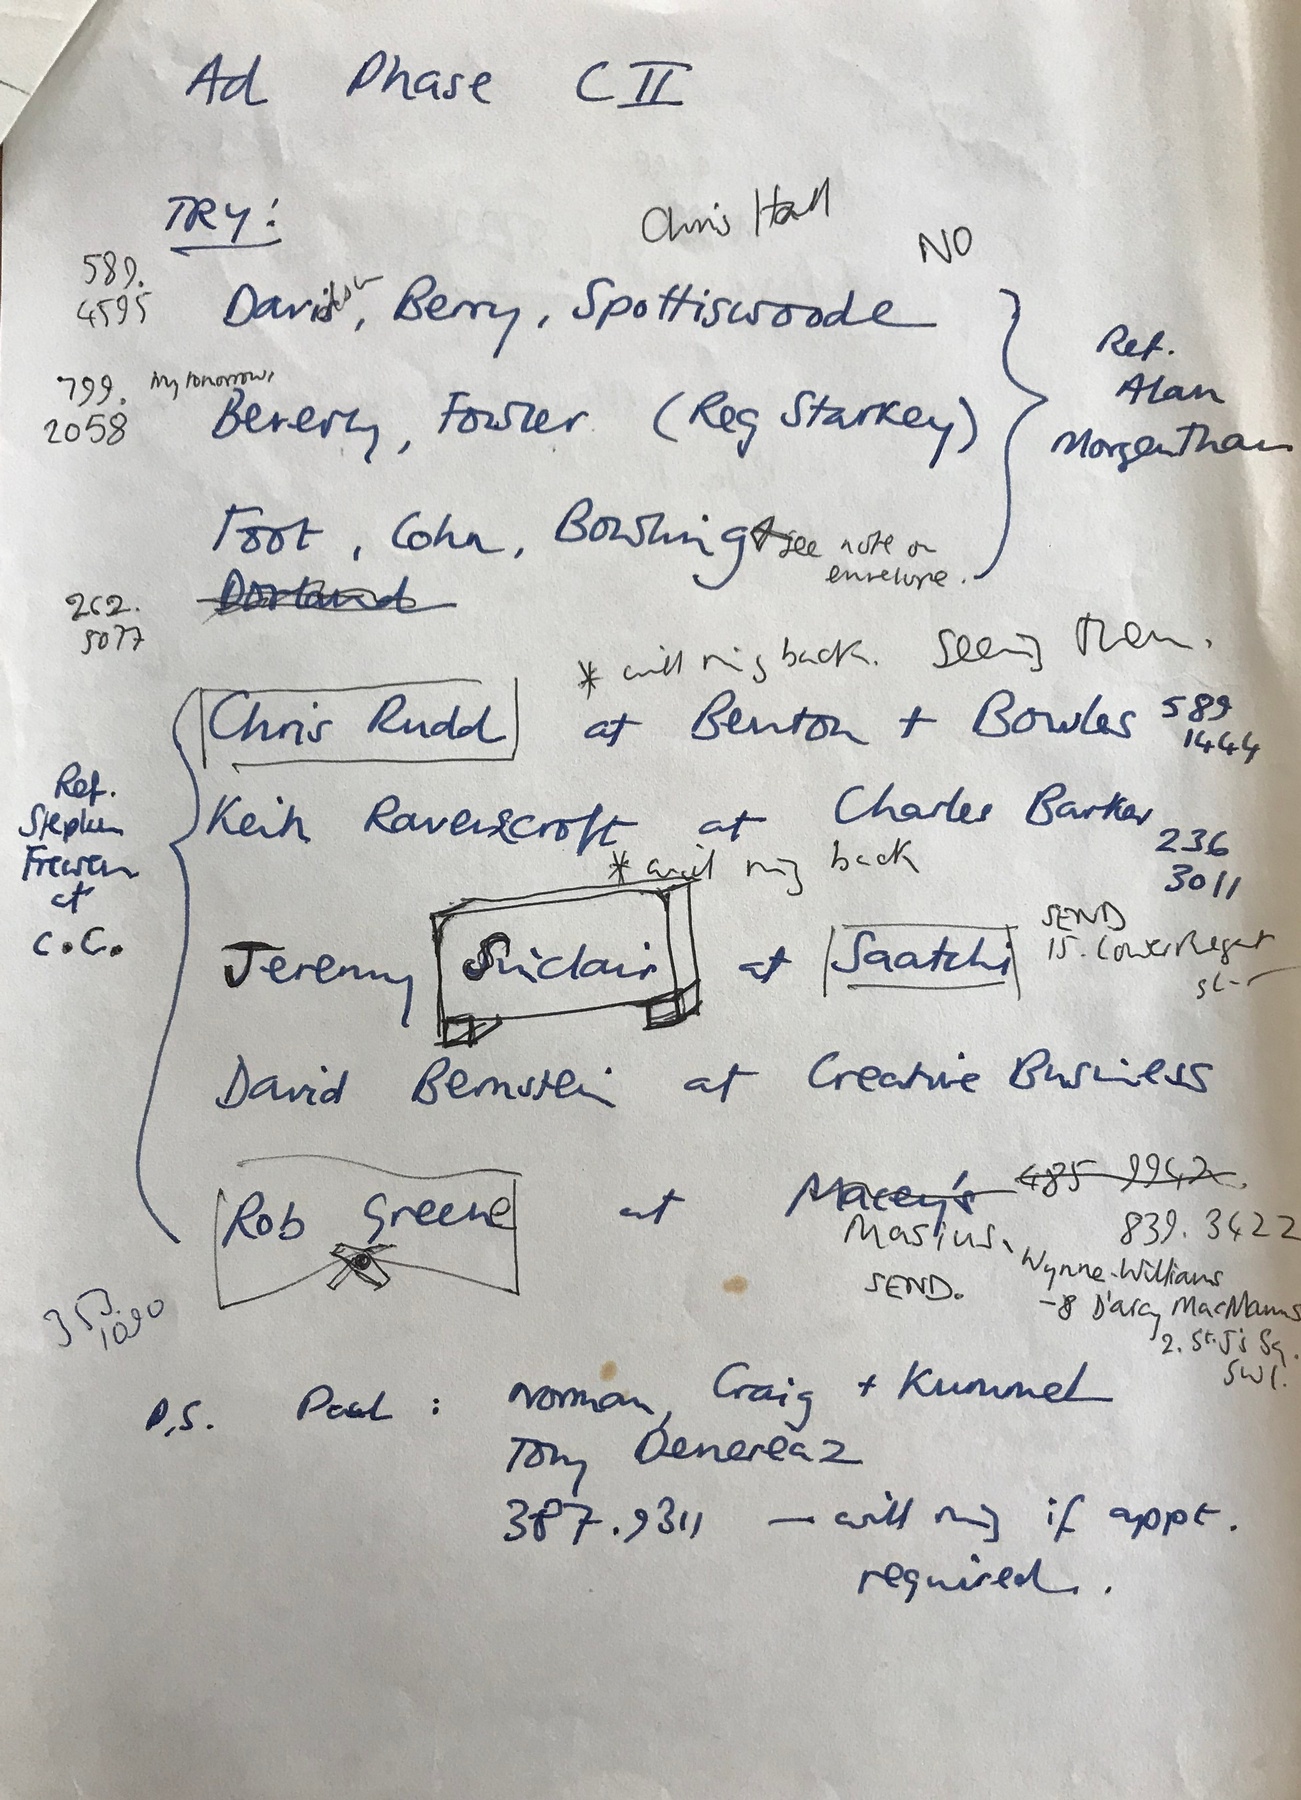 Ad Phase C II
TRY:
Chris Hall
NO
589.
4595
Davidson, Berry, Spottiswoode
799.
2058
try tomorrow,
Beverly, Fowler (Reg Starkey)
Ref.
Alan
Morgenthau
Foot, Cohn, Bowling
see note on
envelope.
Dorland
262.
5077
* will ring back. Seeing them.
Chris Rudd at Benton + Bowles 589
1444
Ref.
Stephen
Frewen
at
C.C.
Keith Ravenscroft at Charles Barker
236
3011
* will ring back
Jeremy Sinclair at Saatchi
SEND
15. Lower Regent
St
David Bernstein at Creative Business
Rob Greene at Macey's 485 9942.
Masius.
SEND.
839. 3422
Wynne-Williams
-8 D'arcy MacManus
2. St. J's Sq.
SW1.
353.
1090
P.S. Paul: Norman, Craig + Kummel
Tony Denereaz
387.9311 — will ring if appt.
required.